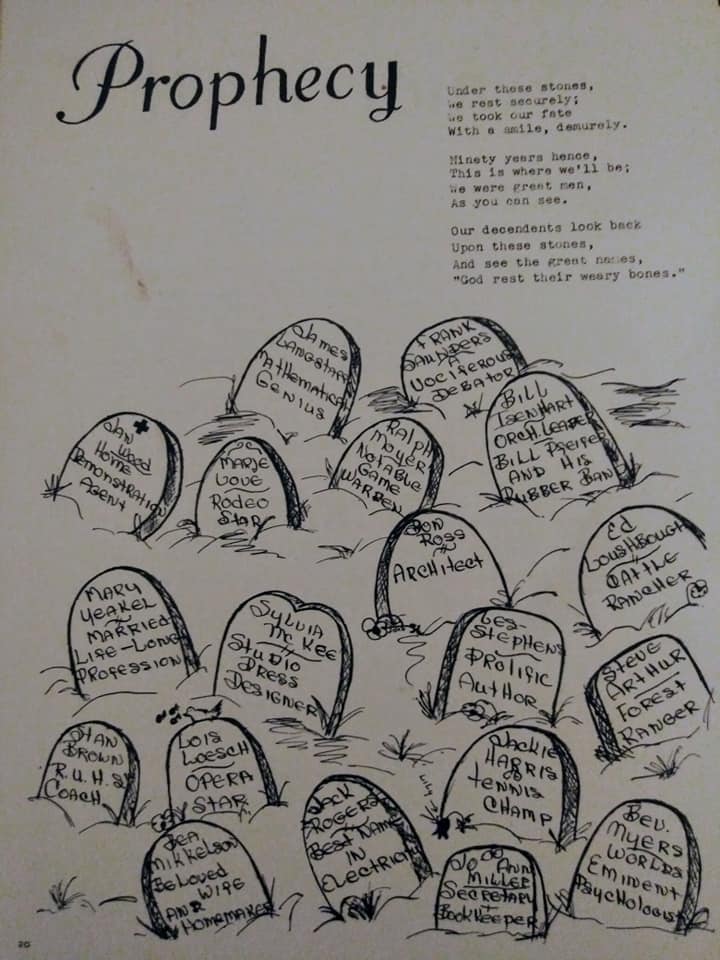 Prophecy
Under these stones,
We rest securely;
We took our fate
With a smile, demurely.
Ninety years hence,
This is where we'll be;
We were great men,
As you can see.
Our decendents look back
Upon these stones,
And see the great names,
"God rest their weary bones."
JAMES
LANGSTAFF
MATHEMATICAL
GENIUS
FRANK
SAUNDERS
A
VOCIFEROUS
DEBATOR
BILL
ISENHART
ORCH. LEADER
BILL PFEIFER
AND HIS
RUBBER BAND
JAN WOOD
HOME
DEMONSTRATION
AGENT
MARJE
LOVE
RODEO
STAR
RALPH
MOYER
NOTABLE
GAME
WARDEN
DON
ROSS
ARCHITECT
ED
LOUSHBOUGH
CATTLE
RANCHER
MARY
YEAKEL
MARRIED
LIFE-LONG
PROFESSION
SYLVIA
MC KEE
STUDIO
DRESS
DESIGNER
LES
STEPHENS
PROLIFIC
AUTHOR
STEVE
ARTHUR
FOREST
RANGER
STAN
BROWN
R.U.H.S
COACH
LOIS
LOESCH
OPERA
STAR
JACKIE
HARRIS
TENNIS
CHAMP
JACK
ROGERS
BEST NAME
IN
ELECTRICITY
BEA
MIKKELSON
BELOVED
WIFE
AND
HOMEMAKER
JO ANN
MILLER
SECRETARY
BOOKKEEPER
BEV.
MYERS
WORLDS
EMINENT
PSYCHOLOGIST
20